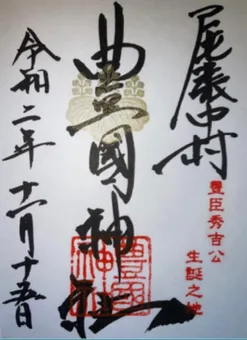 尾張中村
豊臣秀吉公
生誕之地
豊國神社
豊國
神社
令和二年十二月十五日